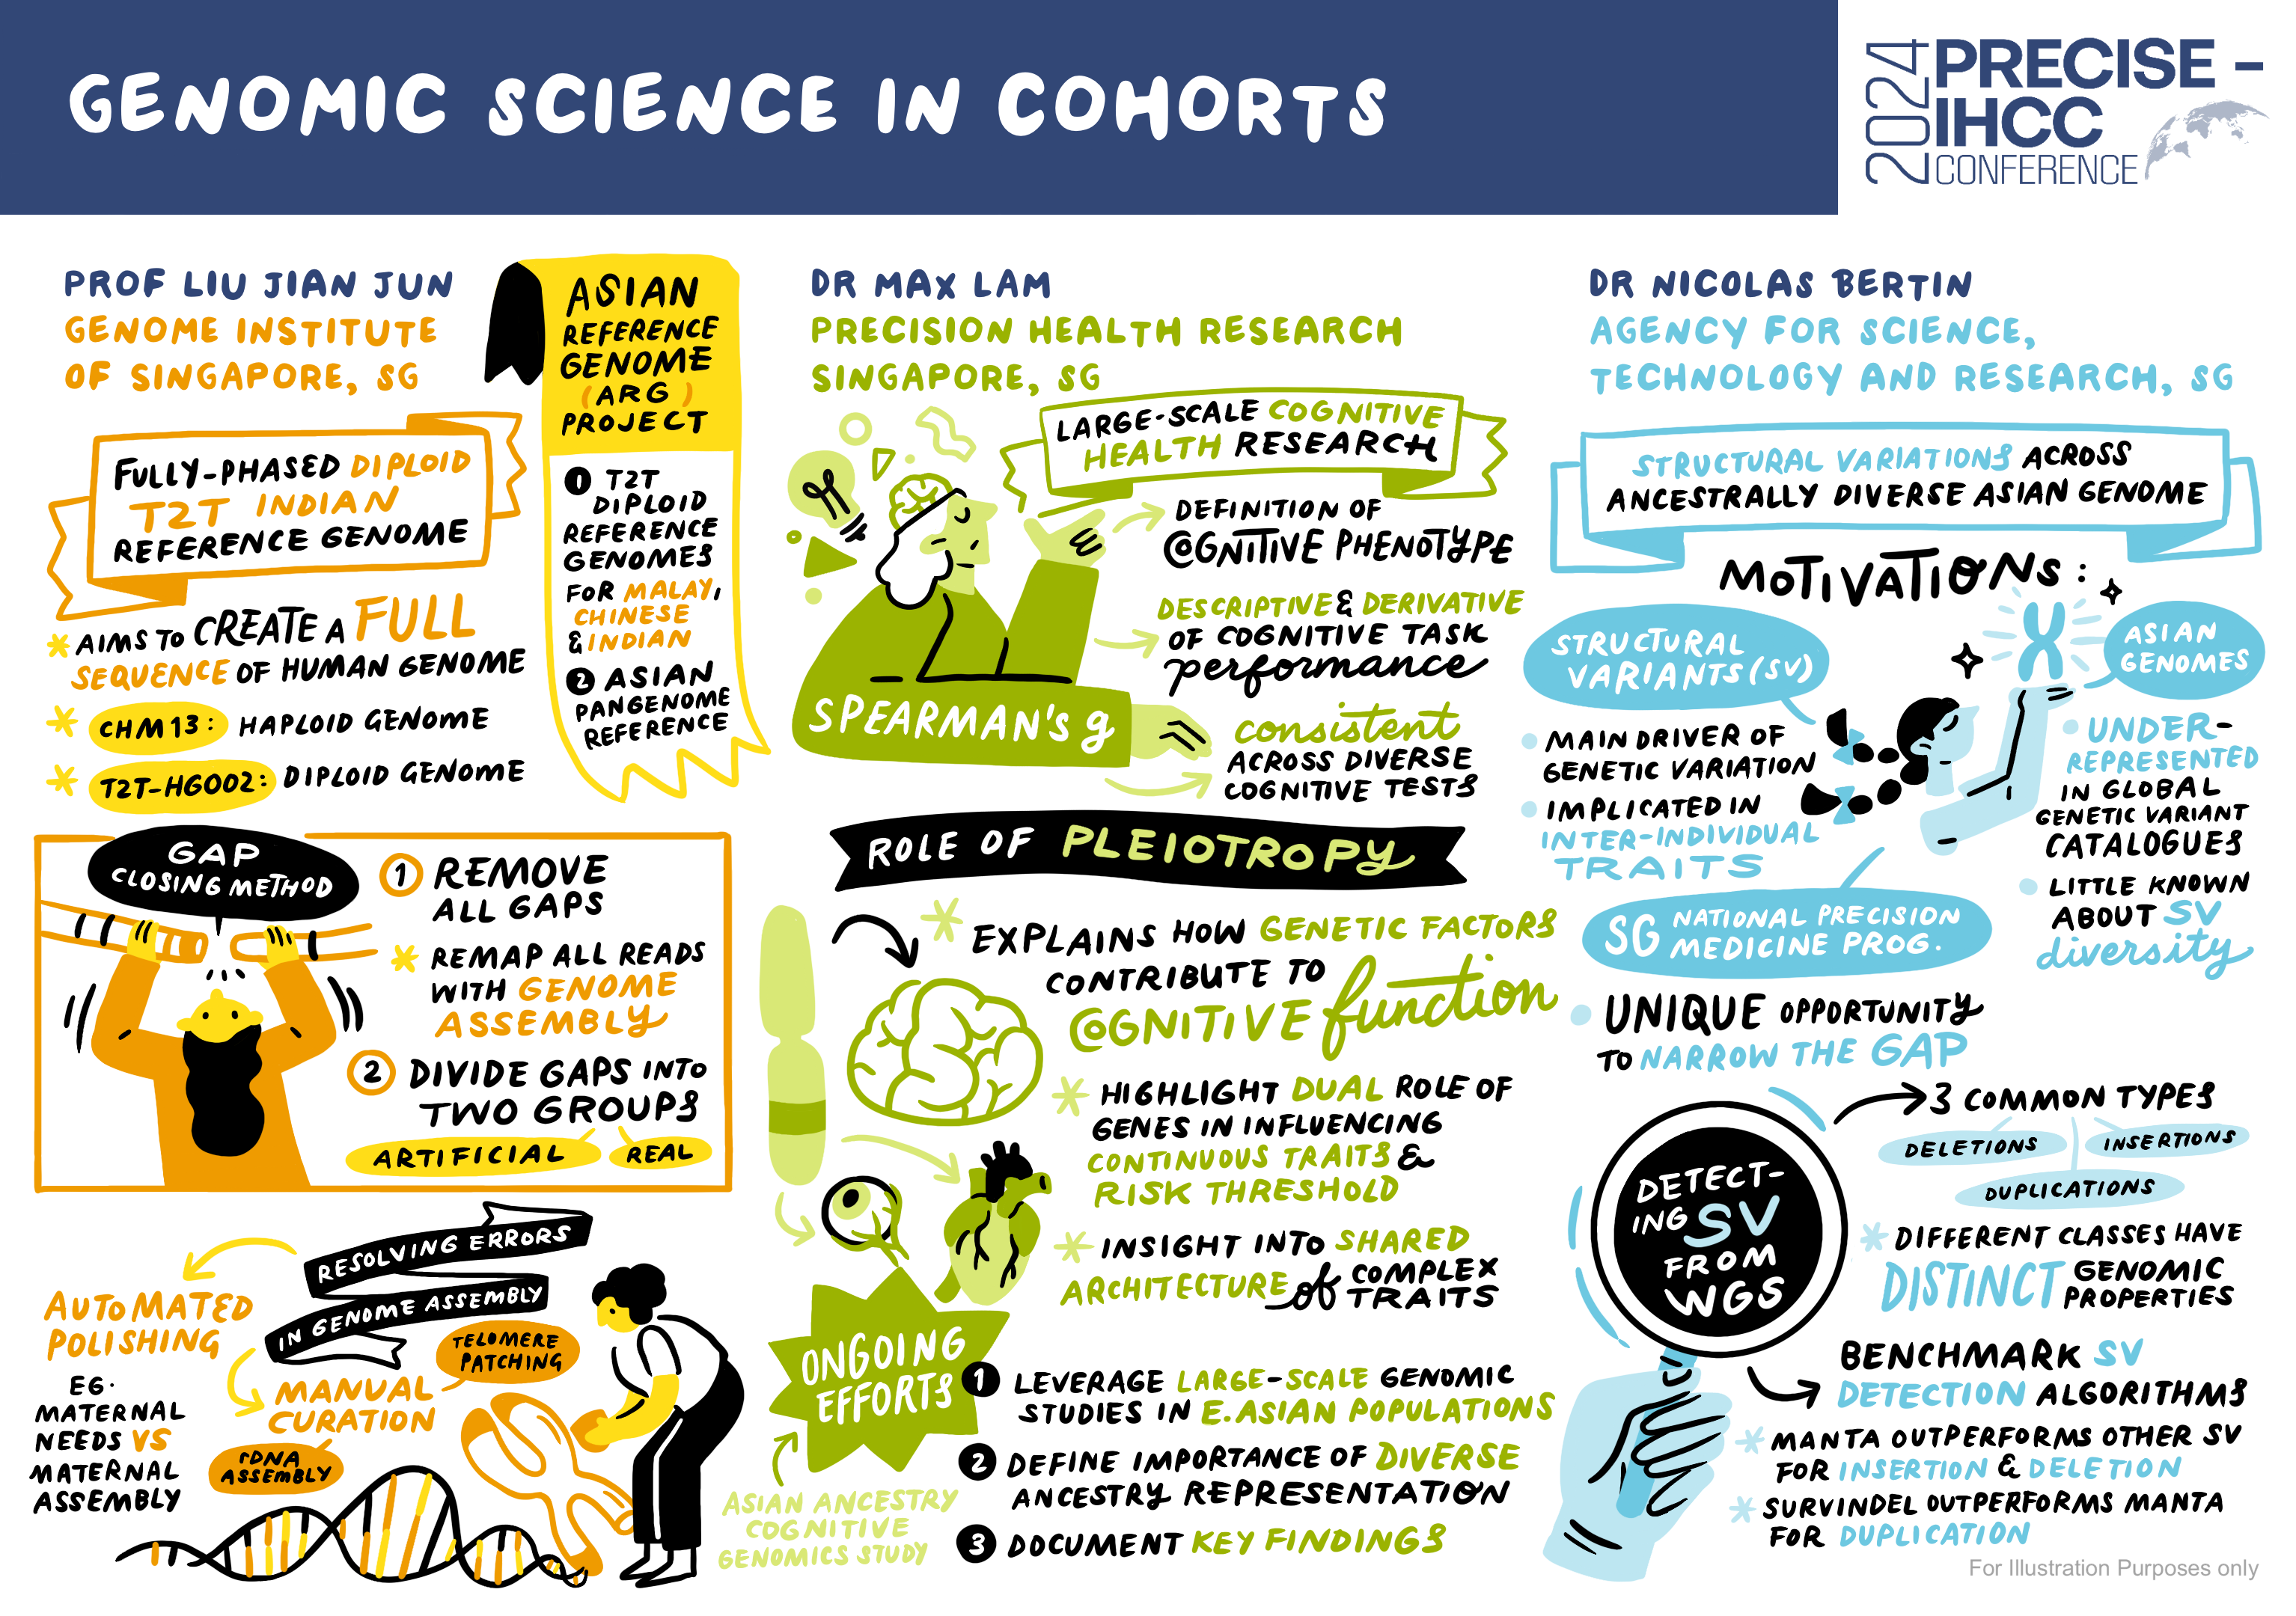 GENOMIC SCIENCE IN COHORTS
2024 PRECISE –
IHCC
CONFERENCE
PROF LIU JIAN JUN
GENOME INSTITUTE
OF SINGAPORE, SG
FULLY-PHASED DIPLOID
T2T INDIAN
REFERENCE GENOME
AIMS TO CREATE A FULL
SEQUENCE OF HUMAN GENOME
CHM13: HAPLOID GENOME
T2T-HG002: DIPLOID GENOME
ASIAN
REFERENCE
GENOME
(ARG)
PROJECT
1 T2T
DIPLOID
REFERENCE
GENOMES
FOR MALAY,
CHINESE
& INDIAN
2 ASIAN
PANGENOME
REFERENCE
GAP
CLOSING METHOD
1 REMOVE
ALL GAPS
REMAP ALL READS
WITH GENOME
ASSEMBLY
2 DIVIDE GAPS INTO
TWO GROUPS
ARTIFICIAL
REAL
RESOLVING ERRORS
IN GENOME ASSEMBLY
AUTOMATED
POLISHING
EG.
MATERNAL
NEEDS VS
MATERNAL
ASSEMBLY
MANUAL
CURATION
TELOMERE
PATCHING
rDNA
ASSEMBLY
DR MAX LAM
PRECISION HEALTH RESEARCH
SINGAPORE, SG
LARGE-SCALE COGNITIVE
HEALTH RESEARCH
SPEARMAN'S g
DEFINITION OF
COGNITIVE PHENOTYPE
DESCRIPTIVE & DERIVATIVE
OF COGNITIVE TASK
performance
consistent
ACROSS DIVERSE
COGNITIVE TESTS
ROLE OF PLEIOTROPY
EXPLAINS HOW GENETIC FACTORS
CONTRIBUTE TO
COGNITIVE function
HIGHLIGHT DUAL ROLE OF
GENES IN INFLUENCING
CONTINUOUS TRAITS &
RISK THRESHOLD
INSIGHT INTO SHARED
ARCHITECTURE of COMPLEX
TRAITS
ONGOING
EFFORTS
ASIAN ANCESTRY
COGNITIVE
GENOMICS STUDY
1 LEVERAGE LARGE-SCALE GENOMIC
STUDIES IN E.ASIAN POPULATIONS
2 DEFINE IMPORTANCE OF DIVERSE
ANCESTRY REPRESENTATION
3 DOCUMENT KEY FINDINGS
DR NICOLAS BERTIN
AGENCY FOR SCIENCE,
TECHNOLOGY AND RESEARCH, SG
STRUCTURAL VARIATIONS ACROSS
ANCESTRALLY DIVERSE ASIAN GENOME
MOTIVATIONS:
STRUCTURAL
VARIANTS (SV)
MAIN DRIVER OF
GENETIC VARIATION
IMPLICATED IN
INTER-INDIVIDUAL
TRAITS
ASIAN
GENOMES
UNDER-
REPRESENTED
IN GLOBAL
GENETIC VARIANT
CATALOGUES
LITTLE KNOWN
ABOUT SV
diversity
SG NATIONAL PRECISION
MEDICINE PROG.
UNIQUE OPPORTUNITY
TO NARROW THE GAP
DETECT-
ING SV
FROM
WGS
3 COMMON TYPES
DELETIONS
INSERTIONS
DUPLICATIONS
DIFFERENT CLASSES HAVE
DISTINCT GENOMIC
PROPERTIES
BENCHMARK SV
DETECTION ALGORITHMS
MANTA OUTPERFORMS OTHER SV
FOR INSERTION & DELETION
SURVINDEL OUTPERFORMS MANTA
FOR DUPLICATION
For Illustration Purposes only